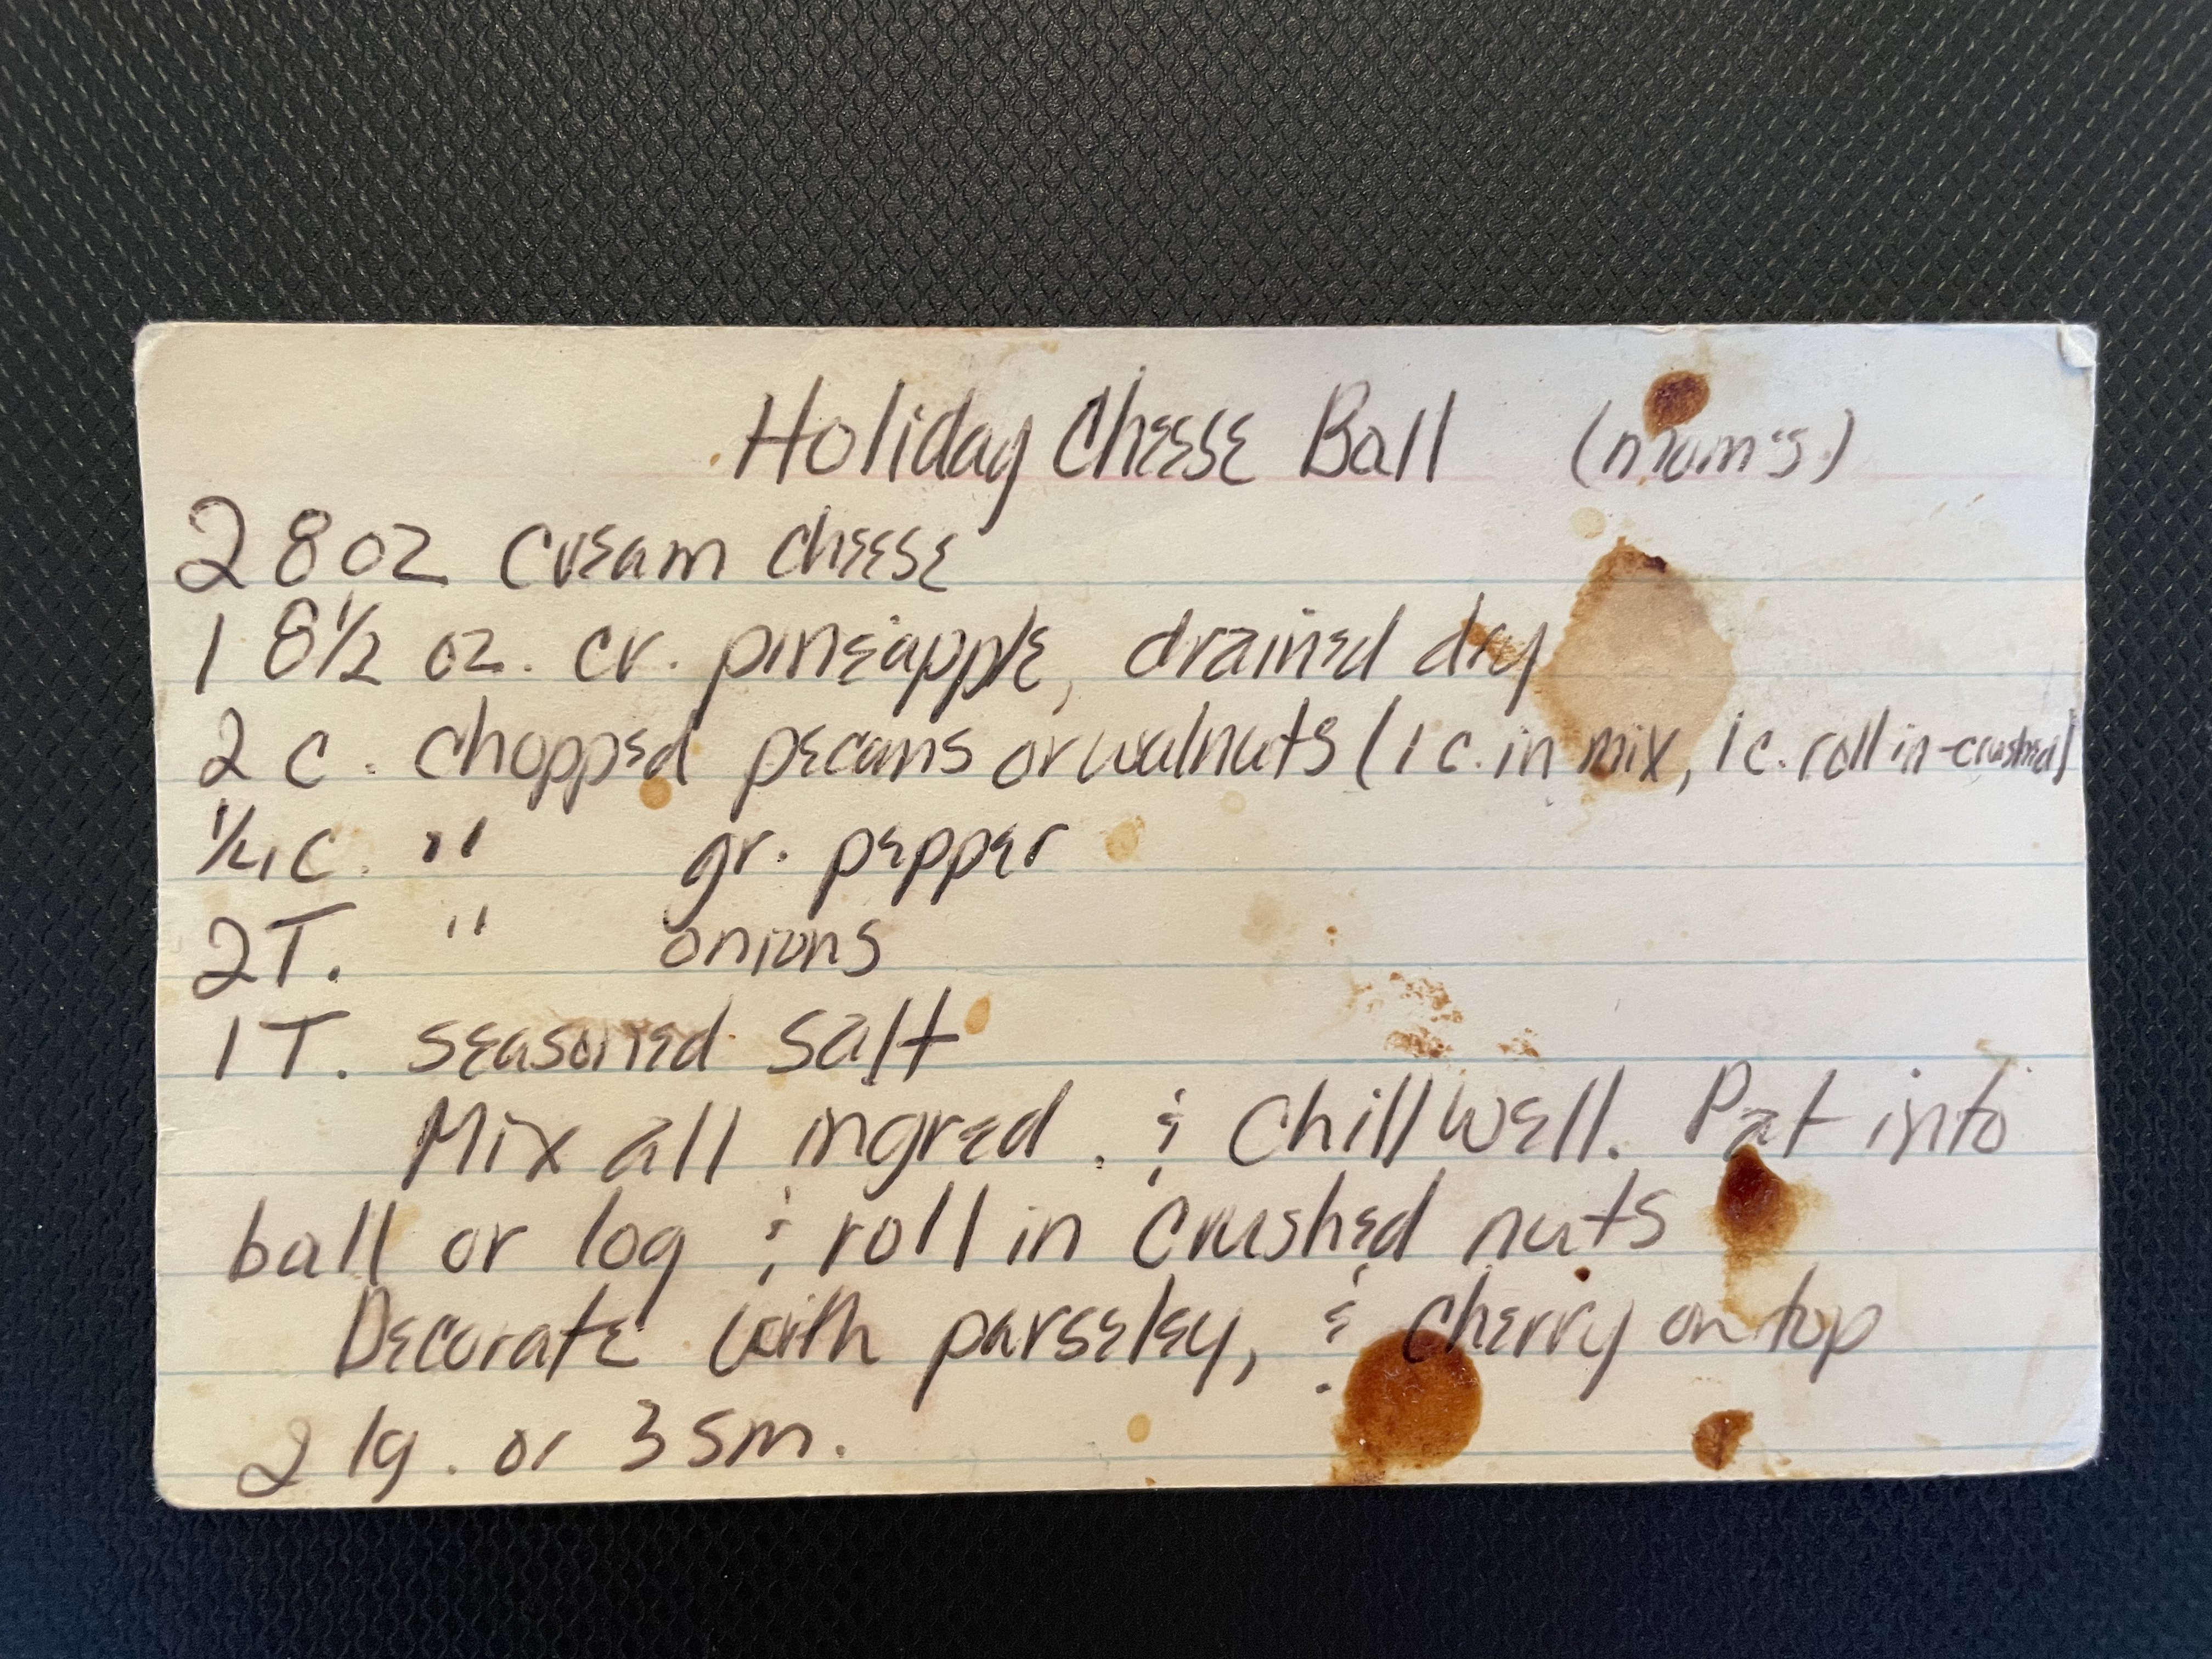 Holiday Cheese Ball (mom's)
2 8 oz cream cheese
1 8 1/2 oz. cr. pineapple, drained dry
2 c. chopped pecans or walnuts (1 c. in mix, 1 c. roll in-crushed)
1/4 c. " gr. pepper
2 T. " onions
1 T. seasoned salt
Mix all ingred. & Chill well. Pat into
ball or log & roll in crushed nuts
Decorate with parseley, & cherry on top
2 lg. or 3 sm.